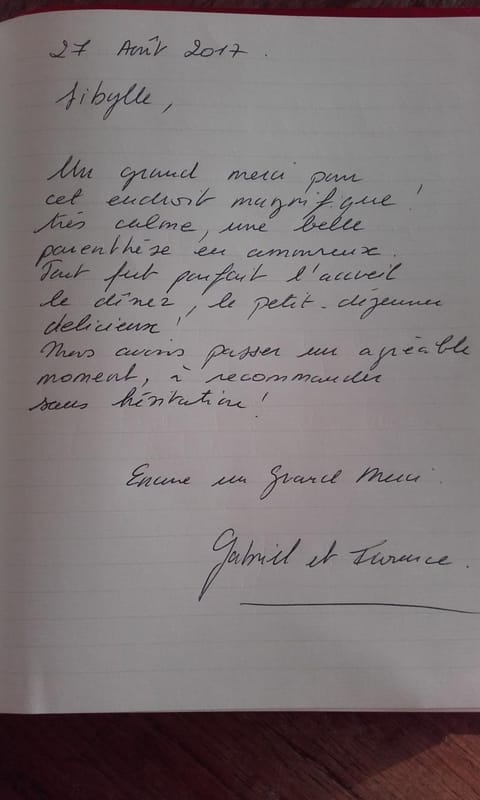 27 Août 2017.
Sibylle,
Un grand merci pour
cet endroit magnifique !
très calme, une belle
parenthèse en amoureux.
Tout fut parfait l'accueil
le dînez, le petit-déjeuner
delicieux !
Nous avons passer un agréable
moment, à recommander
sans hésitation !
Encore un Grand Merci.
Gabriel et